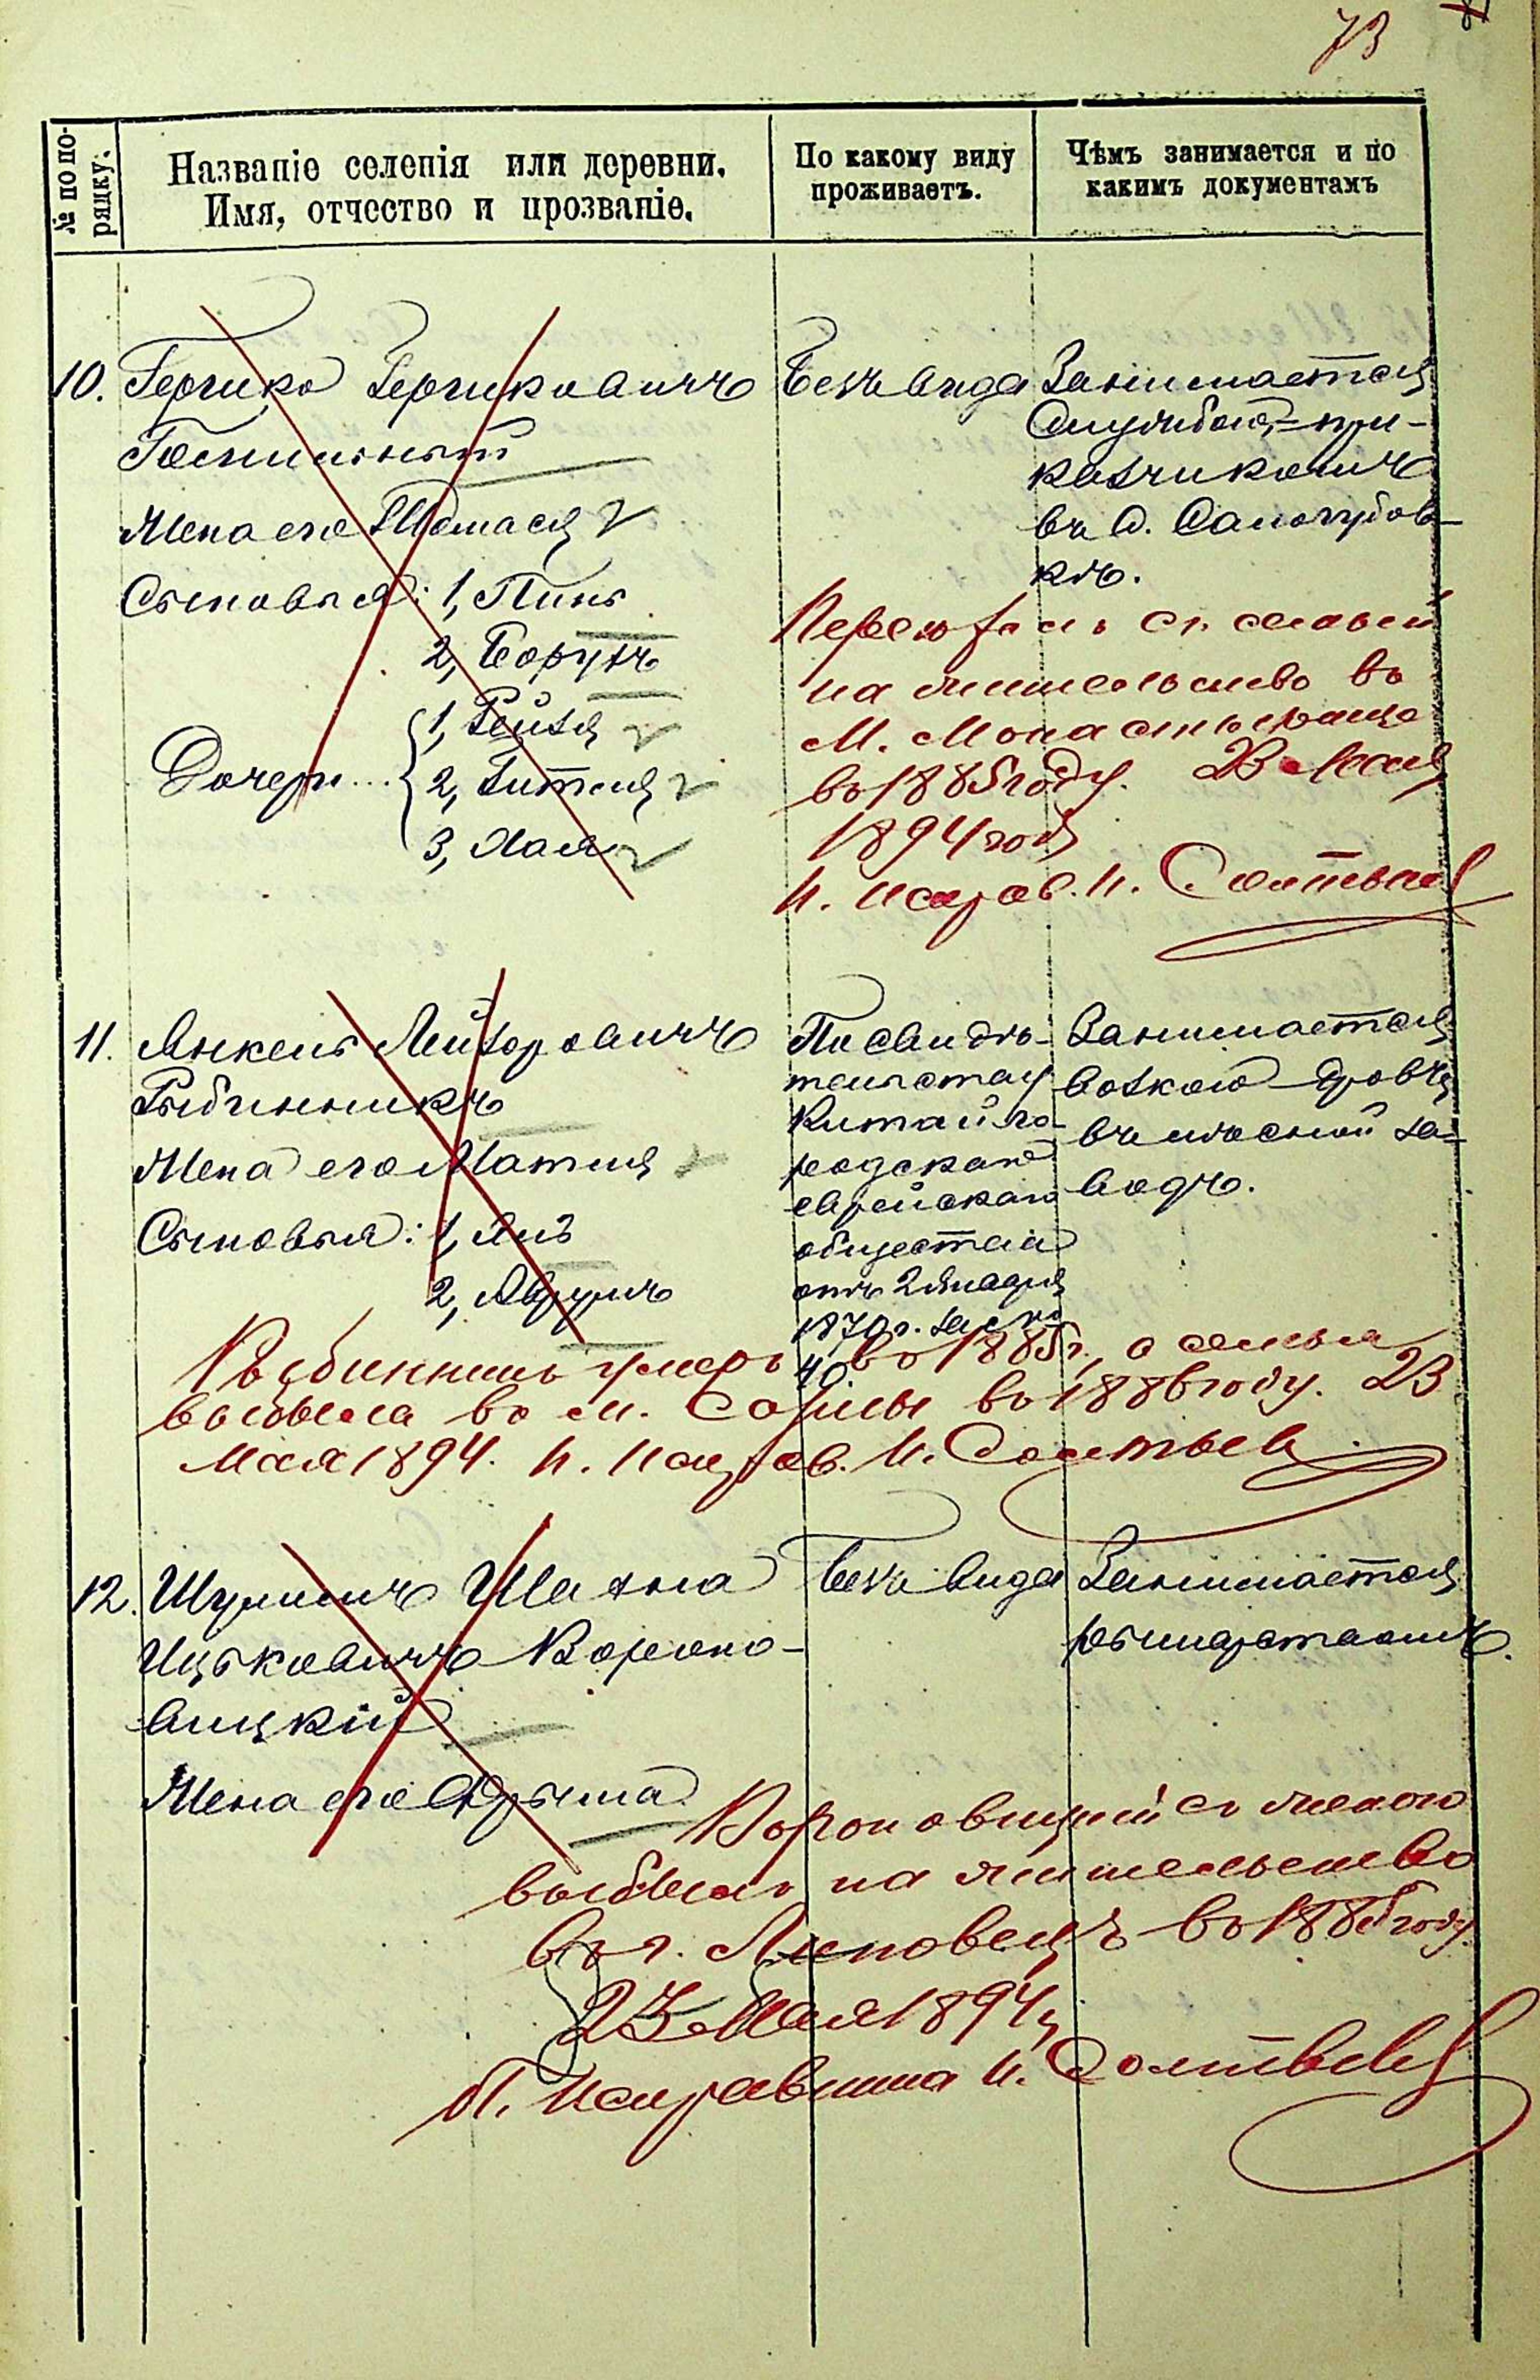 73
№ по по-
рядку.
Названіе селенія или деревни.
Имя, отчество и прозваніе.
По какому виду
проживаетъ.
Чѣмъ занимается и по
какимъ документамъ
10. Гершко Гершковичъ
Жена его
Сыновья: 1, Пинь
2, Борухъ
Дочери... 1, Рейзя
2, Гитля
3, Хая
Безъ вида
Занимается
службою, при-
казчикомъ
въ с. Самогубов-
кѣ.
съ семьей
на жительство въ
М. Монастырище
въ 1885 году. 23 Мая
1894 год
И. Исправ. И.
11. Янкель Лейзоровичъ
Рыбинникъ
Жена его
Сыновья: 1,
2, Аврумъ
По свидѣ-
тельству
Китайго-
родскаго
еврейскаго
общества
отъ 2 Января
1870 г. за №
40.
Занимается
возкою дровъ
въ мѣсной за-
водъ.
умеръ въ 1885 г., а семья
выбыла въ м. въ 1886 году. 23
Мая 1894. И. Исправ. И.
12. Шулимъ Шахна
Ицьковичъ Вороно-
вицкій
Жена его
Безъ вида
Занимается
Вороновицкій съ женою
выбылъ на жительство
въ г. Липовецъ въ 1885 году.
23 Мая 1894
И. Исправника И.